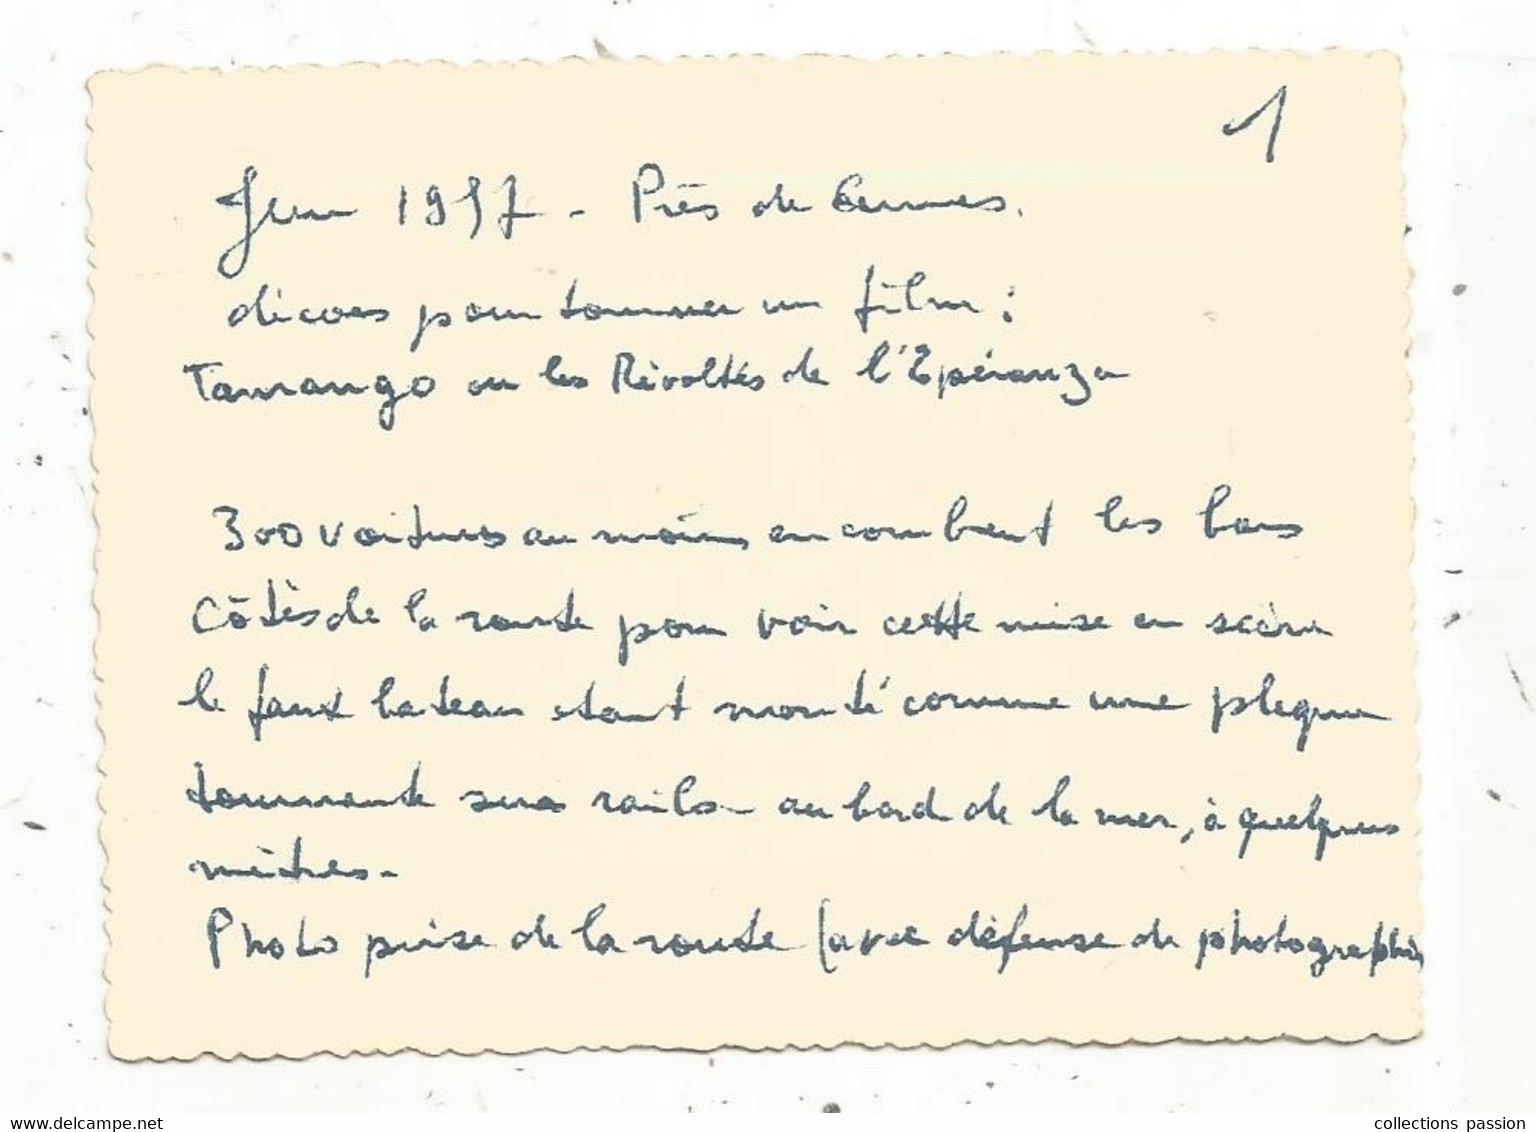 1
Juin 1957 - Près de Cannes.
décors pour tourner un film :
Tamango ou les Révoltés de l'Espéranza
300 voitures au moins encombrent les bas
Côtés de la route pour voir cette mise en scène
le faux bateau étant monté comme une plaque
tournante sur rails au bord de la mer, à quelques
mètres.
Photo prise de la route (avec défense de photographier
collections passion